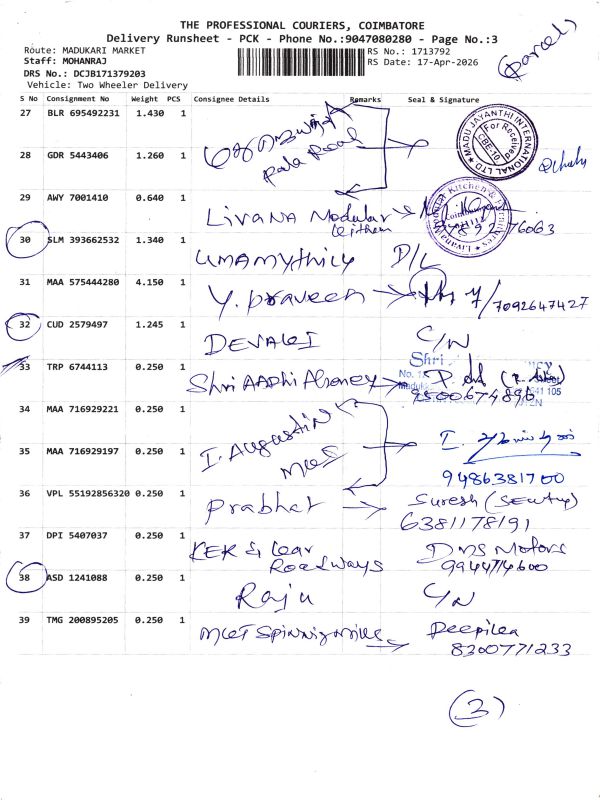 (parcel)
THE PROFESSIONAL COURIERS, COIMBATORE
Delivery Runsheet - PCK - Phone No.:9047080280 - Page No.:3
Route: MADUKARI MARKET
RS No.: 1713792
Staff: MOHANRAJ
RS Date: 17-Apr-2026
DRS No.: DCJB171379203
Vehicle: Two Wheeler Delivery
S No Consignment No Weight PCS Consignee Details Remarks Seal & Signature
27 BLR 695492231 1.430 1
MADU JAYANTHI INTERNATIONAL LTD
For Received
28 GDR 5443406 1.260 1
29 AWY 7001410 0.640 1 LIVANA Modular
30 SLM 393662532 1.340 1 UMAMYTHILY D/L
31 MAA 575444280 4.150 1 Y. Praveen 7092647427
32 CUD 2579497 1.245 1 DEVAKI C/N
33 TRP 6744113 0.250 1 Shri AADHI Agency
Shri
9500674896
34 MAA 716929221 0.250 1
I. Augustin
35 MAA 716929197 0.250 1
9486381700
36 VPL 55192856320 0.250 1 Prabhat Suresh
6381178191
37 DPI 5407037 0.250 1 KEK & Lear Roadways DMS Motors
9944714600
38 ASD 1241088 0.250 1 Raju C/N
39 TMG 200895205 0.250 1 Deepika
8300771233
(3)